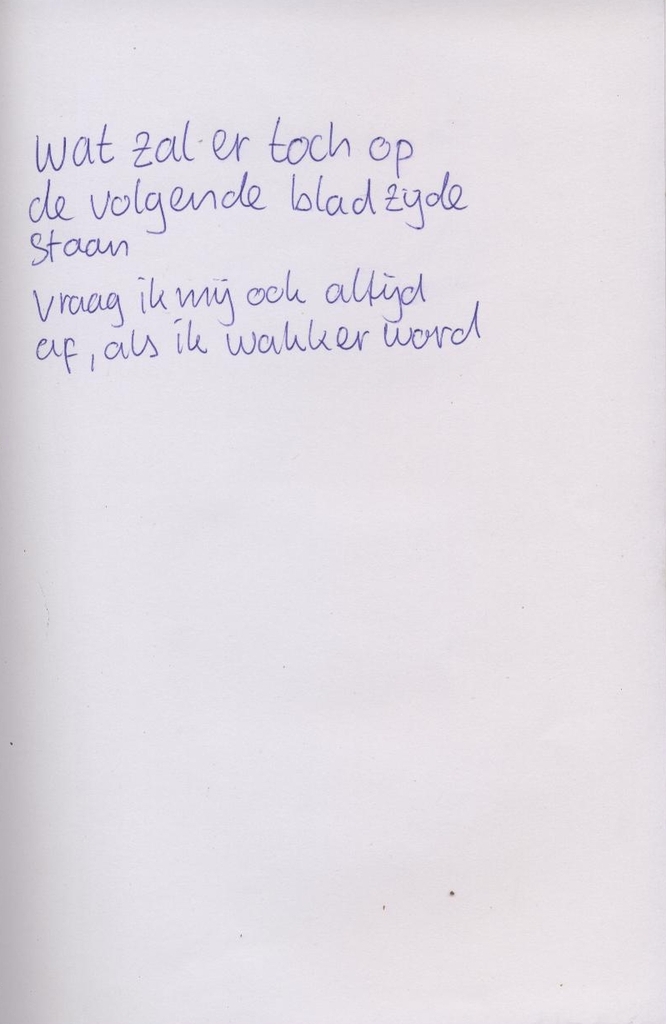 Wat zal er toch op
de volgende bladzijde
staan
vraag ik mij ook altijd
af, als ik wakker word